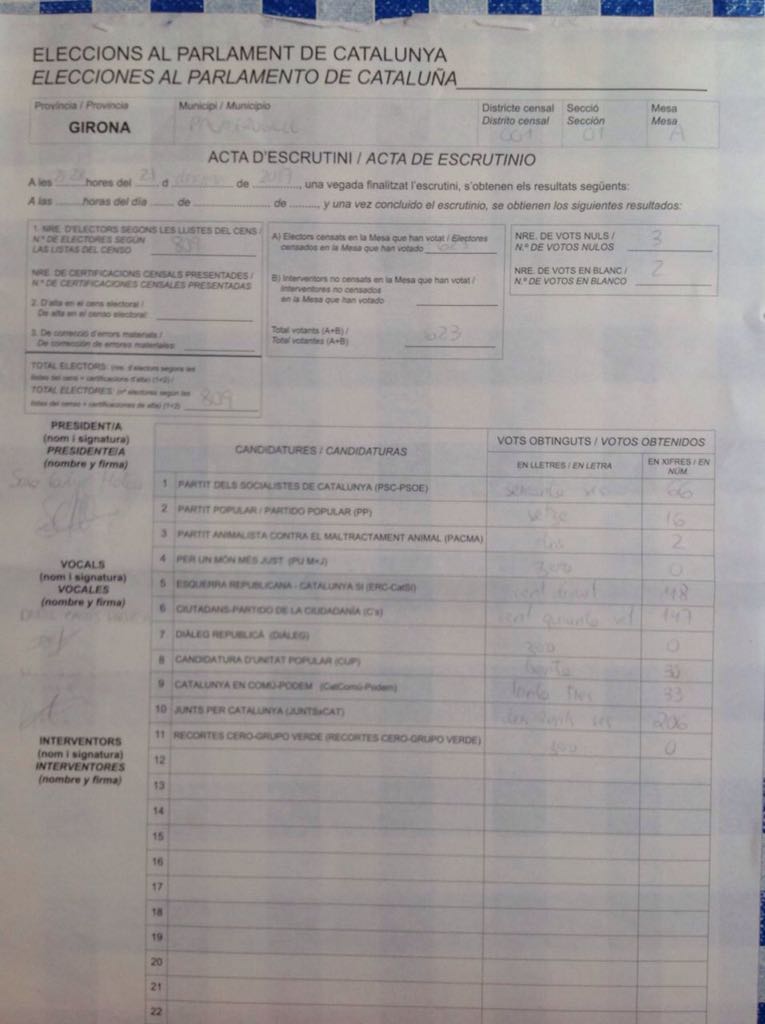 ELECCIONS AL PARLAMENT DE CATALUNYA
ELECCIONES AL PARLAMENTO DE CATALUÑA
Província / Provincia
GIRONA
Municipi / Municipio
Districte censal
Distrito censal
001
Secció
Sección
01
Mesa
Mesa
A
ACTA D'ESCRUTINI / ACTA DE ESCRUTINIO
A les hores del 21 d de 2017, una vegada finalitzat l'escrutini, s'obtenen els resultats següents:
A las horas del día de de, y una vez concluido el escrutinio, se obtienen los siguientes resultados:
1. NRE. D'ELECTORS SEGONS LES LLISTES DEL CENS /
N.º DE ELECTORES SEGÚN
LAS LISTAS DEL CENSO 809
NRE. DE CERTIFICACIONS CENSALS PRESENTADES /
N.º DE CERTIFICACIONES CENSALES PRESENTADAS
2. D'alta en el cens electoral /
De alta en el censo electoral:
3. De correcció d'errors materials /
De corrección de errores materiales:
TOTAL ELECTORS: (nre. d'electors segons les
llistes del cens + certificacions d'alta) (1+2) /
TOTAL ELECTORES: (nº electores según las
listas del censo + certificaciones de alta) (1+2) 809
A) Electors censats en la Mesa que han votat / Electores
censados en la Mesa que han votado 623
B) Interventors no censats en la Mesa que han votat /
Interventores no censados
en la Mesa que han votado
Total votants (A+B) /
Total votantes (A+B) 623
NRE. DE VOTS NULS /
N.º DE VOTOS NULOS 3
NRE. DE VOTS EN BLANC /
N.º DE VOTOS EN BLANCO 2
PRESIDENT/A
(nom i signatura)
PRESIDENTE/A
(nombre y firma)
VOCALS
(nom i signatura)
VOCALES
(nombre y firma)
INTERVENTORS
(nom i signatura)
INTERVENTORES
(nombre y firma)
CANDIDATURES / CANDIDATURAS
VOTS OBTINGUTS / VOTOS OBTENIDOS
EN LLETRES / EN LETRA
EN XIFRES / EN NÚM
1 PARTIT DELS SOCIALISTES DE CATALUNYA (PSC-PSOE) 66
2 PARTIT POPULAR / PARTIDO POPULAR (PP) setze 16
3 PARTIT ANIMALISTA CONTRA EL MALTRACTAMENT ANIMAL (PACMA) dos 2
4 PER UN MÓN MÉS JUST (PUM+J) zero 0
5 ESQUERRA REPUBLICANA - CATALUNYA SÍ (ERC-CatSí) 118
6 CIUTADANS-PARTIDO DE LA CIUDADANÍA (C's) 147
7 DIÀLEG REPUBLICÀ (DIÀLEG) zero 0
8 CANDIDATURA D'UNITAT POPULAR (CUP) trenta 30
9 CATALUNYA EN COMÚ-PODEM (CatComú-Podem) trenta tres 33
10 JUNTS PER CATALUNYA (JUNTSxCAT) dos cents sis 206
11 RECORTES CERO-GRUPO VERDE (RECORTES CERO-GRUPO VERDE) zero 0
12
13
14
15
16
17
18
19
20
21
22